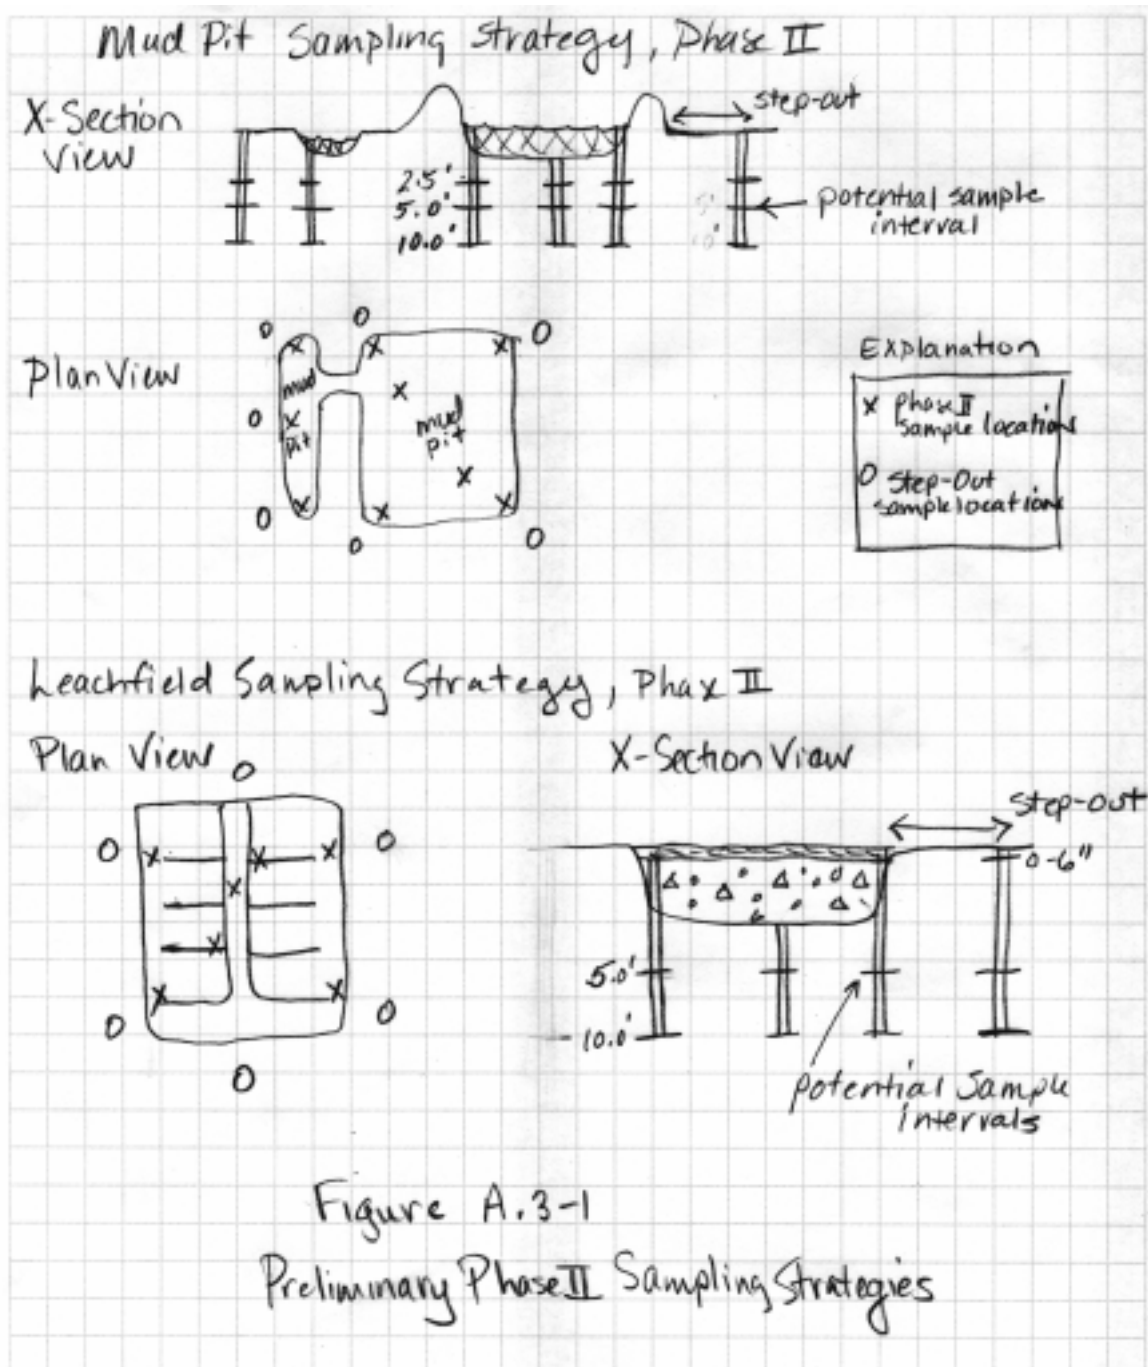 Mud Pit Sampling Strategy, Phase II
X-Section
View
step-out
2.5'
5.0'
10.0'
5'
10'
potential sample
interval
Plan View
O
O
O
O
O
O
O
O
X
X
X
X
X
X
X
X
X
mud
pit
mud
pit
Explanation
X Phase II
sample locations
O Step-Out
sample locations
Leachfield Sampling Strategy, Phase II
Plan View
O
O
O
O
O
O
X
X
X
X
X
X
X
X-Section View
Step-out
0-6"
5.0'
10.0'
potential Sample
Intervals
Figure A.3-1
Preliminary Phase II Sampling Strategies